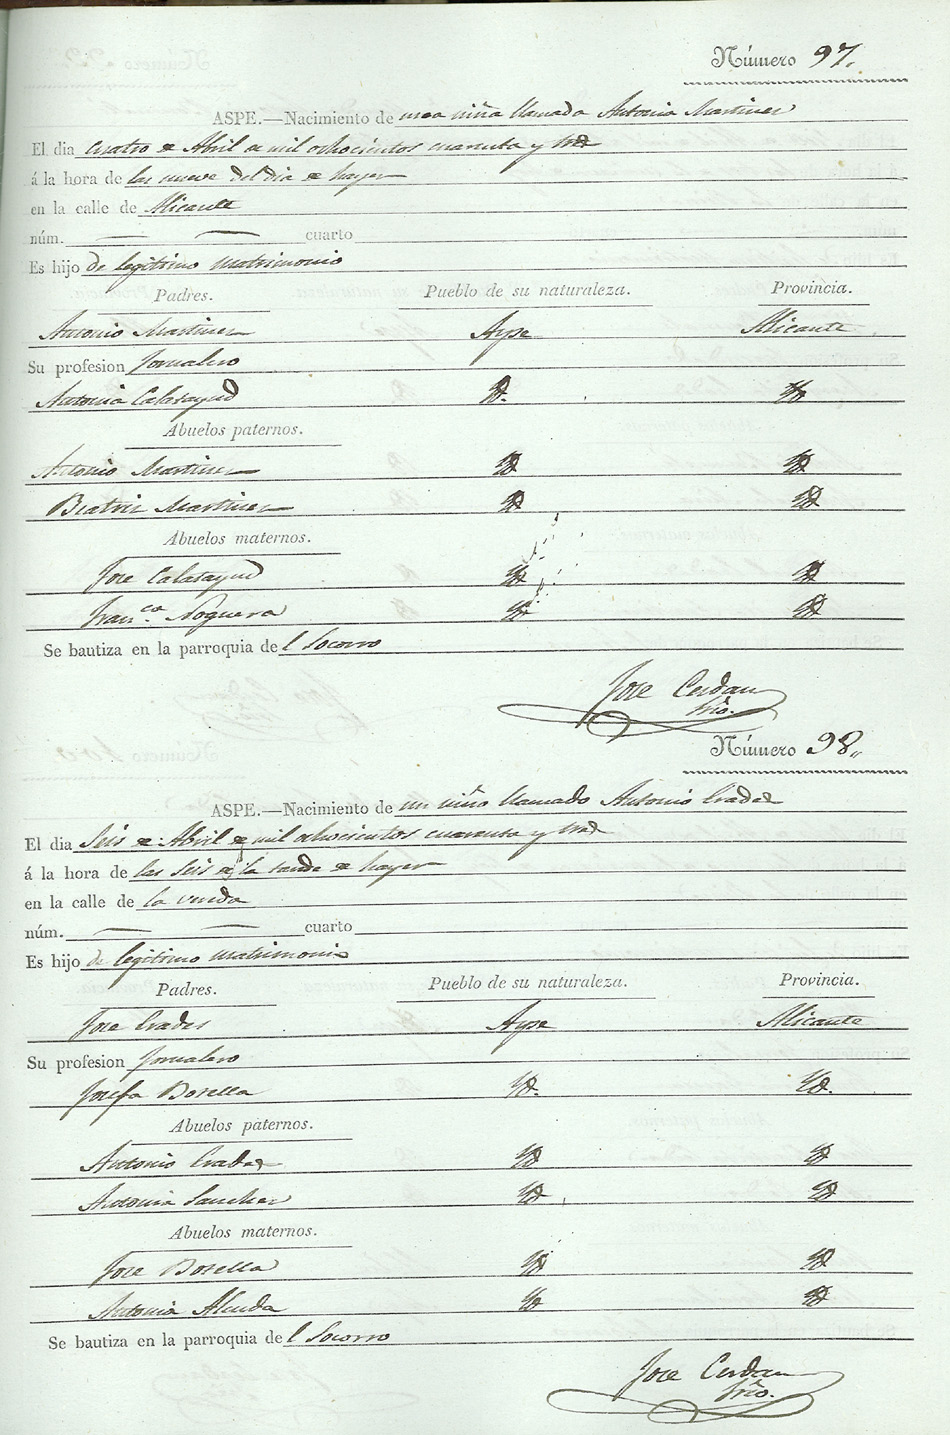 Número 97.
ASPE.—Nacimiento de una niña llamada Antonia Martinez
El dia cuatro de Abril de mil ochocientos cuarenta y tres
á la hora de las nueve del dia de hayer
en la calle de Alicante
núm. — — cuarto
Es hijo de legitimo matrimonio
Padres. Pueblo de su naturaleza. Provincia.
Antonio Martinez Aspe Alicante
Su profesion Jornalero
Antonia Calatayud Id. Id.
Abuelos paternos.
Antonio Martinez Id. Id.
Beatriz Martinez Id. Id.
Abuelos maternos.
Jose Calatayud Id. Id.
Fran.ca Noguera Id. Id.
Se bautiza en la parroquia de l Socorro
Jose Cerdan
Srio.
Número 98.
ASPE.—Nacimiento de un niño llamado Antonio Prades
El dia Seis de Abril de mil ochocientos cuarenta y tres
á la hora de las Seis de la tarde de hayer
en la calle de la
núm. — — cuarto
Es hijo de legitimo matrimonio
Padres. Pueblo de su naturaleza. Provincia.
Jose Prades Aspe Alicante
Su profesion Jornalero
Josefa Botella Id. Id.
Abuelos paternos.
Antonio Prades Id. Id.
Antonia Sanchez Id. Id.
Abuelos maternos.
Jose Botella Id. Id.
Antonia Id. Id.
Se bautiza en la parroquia de l Socorro
Jose Cerdan
Srio.